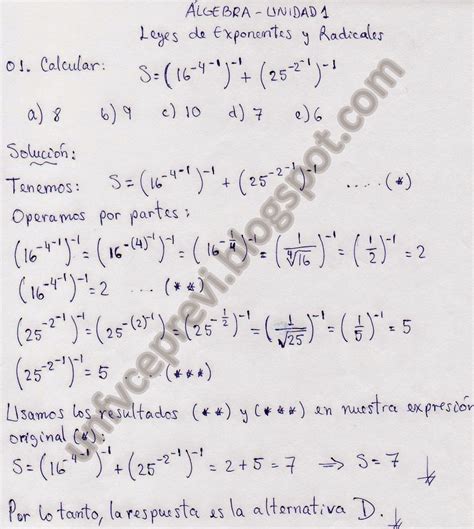 ÁLGEBRA - UNIDAD 1
Leyes de Exponentes y Radicales
01. Calcular: S = (16^-4^-1)^-1 + (25^-2^-1)^-1
a) 8 b) 9 c) 10 d) 7 e) 6
Solución:
Tenemos: S = (16^-4^-1)^-1 + (25^-2^-1)^-1 .... (*)
Operamos por partes:
(16^-4^-1)^-1 = (16^-(4)^-1)^-1 = (16^-1/4)^-1 = (1/∜16)^-1 = (1/2)^-1 = 2
(16^-4^-1)^-1 = 2 ... (**)
(25^-2^-1)^-1 = (25^-(2)^-1)^-1 = (25^-1/2)^-1 = (1/√25)^-1 = (1/5)^-1 = 5
(25^-2^-1)^-1 = 5 .... (***)
Usamos los resultados (**) y (***) en nuestra expresión
original (*):
S = (16^-4^-1)^-1 + (25^-2^-1)^-1 = 2 + 5 = 7 ⇒ S = 7
Por lo tanto, la respuesta es la alternativa D.
unfvceprevi.blogspot.com